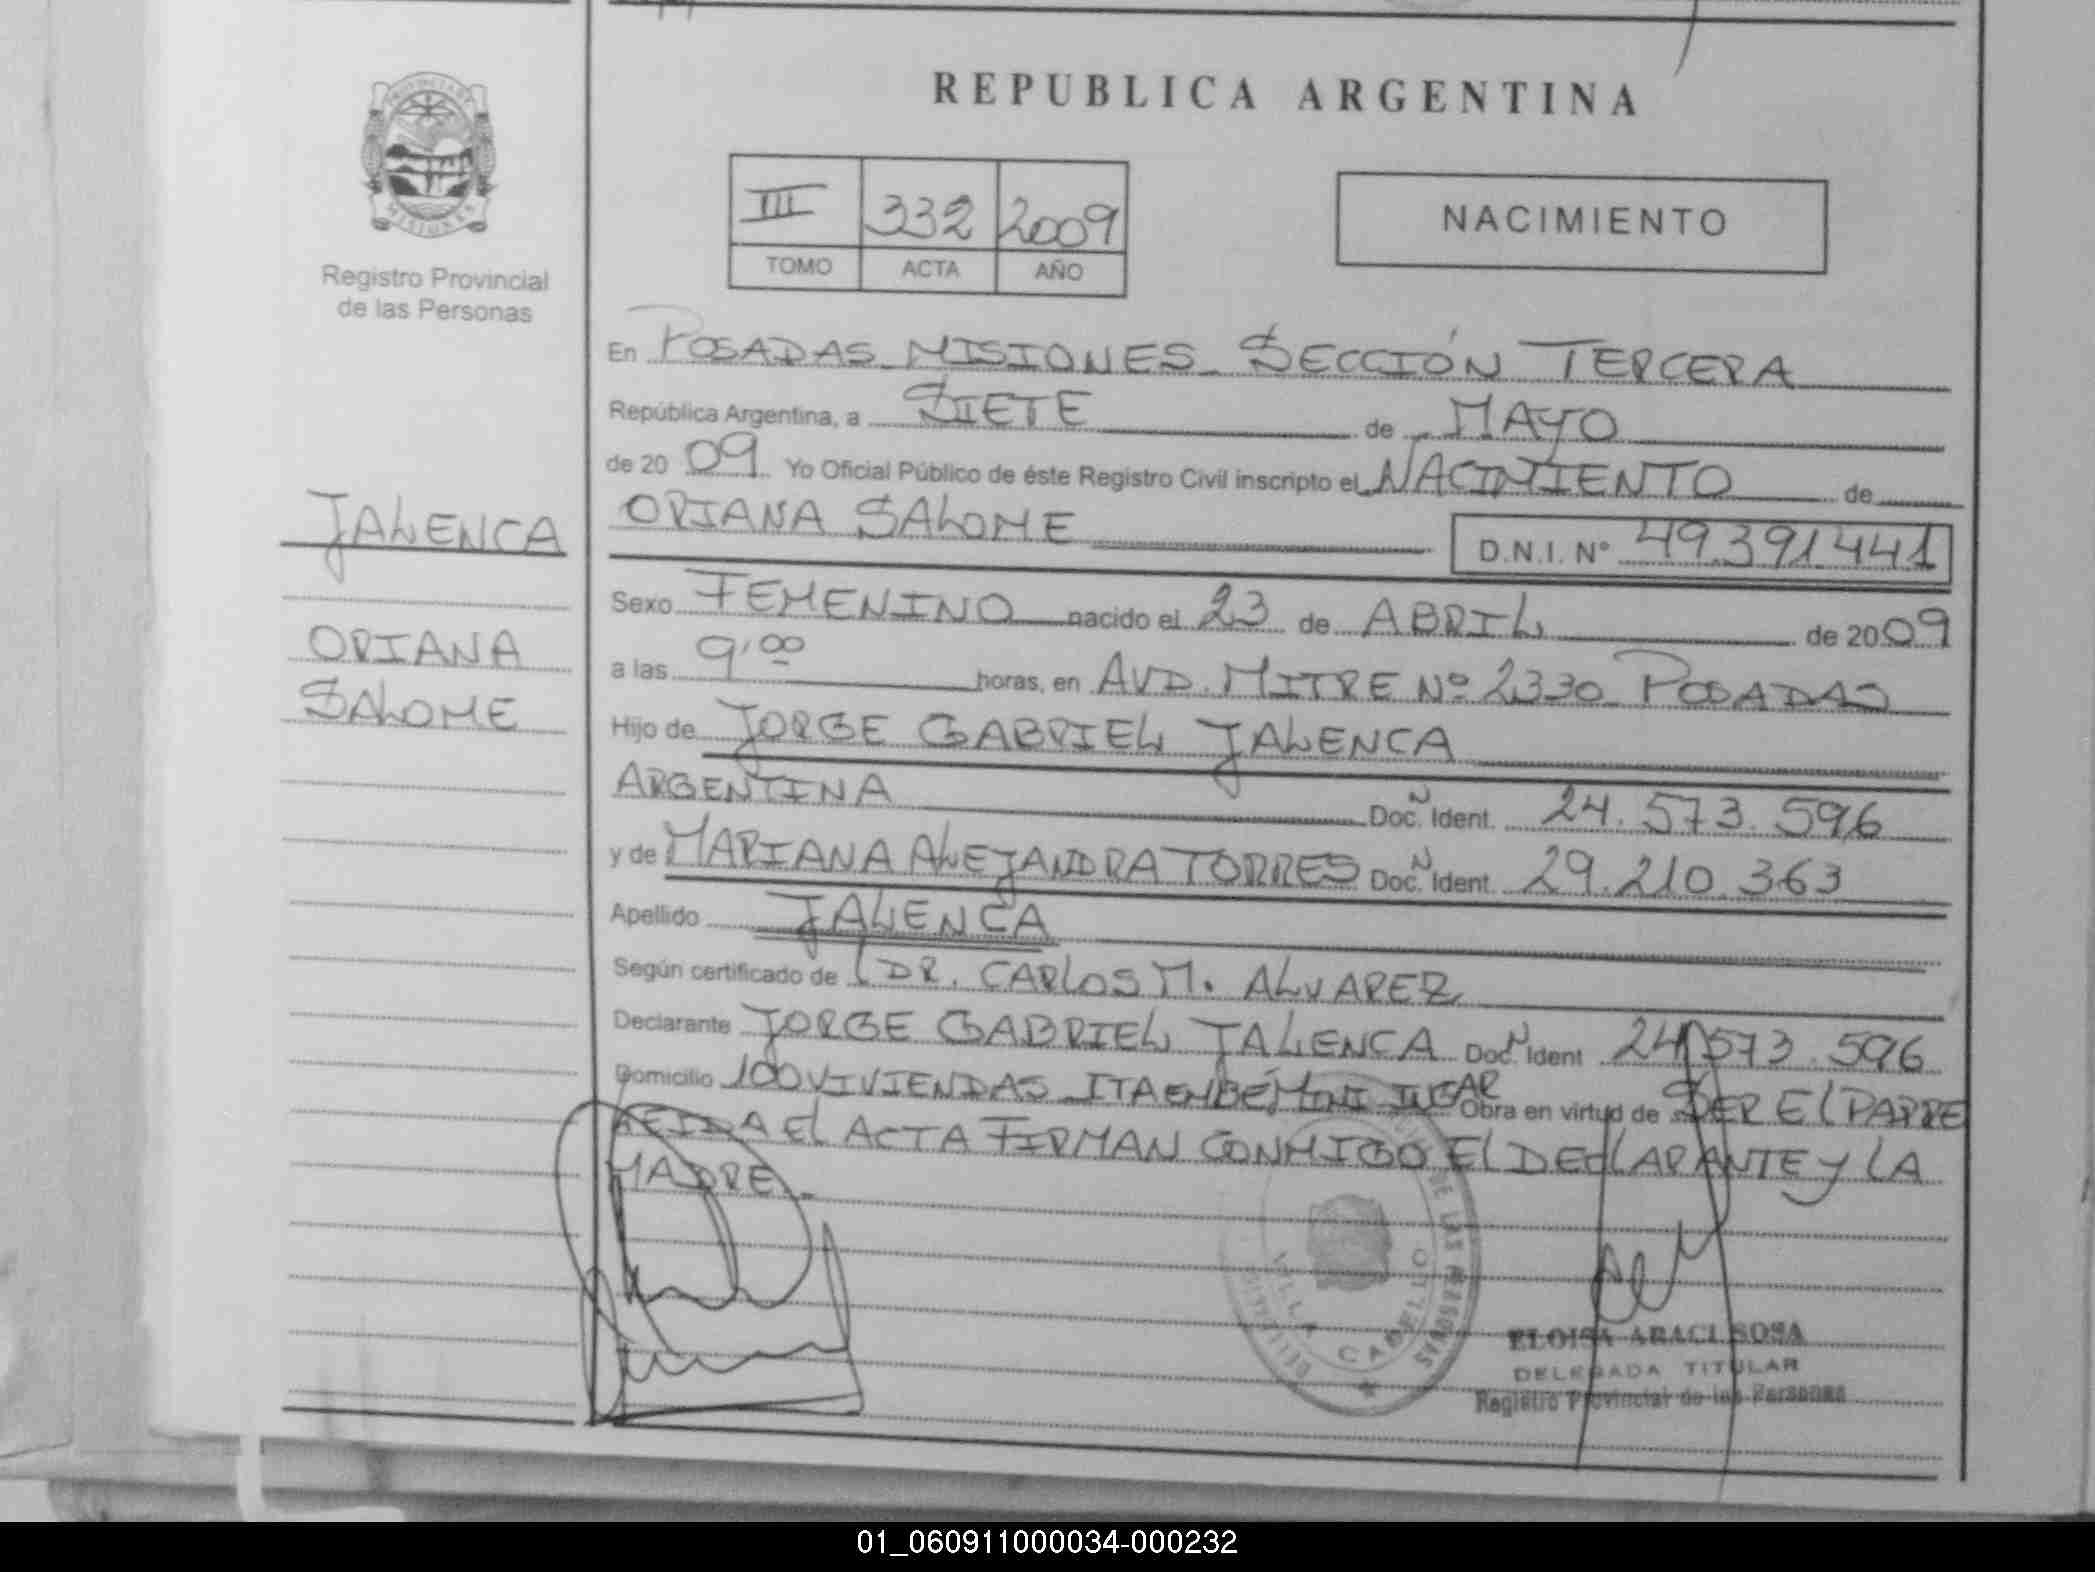 REPUBLICA ARGENTINA
PROVINCIA DE MISIONES
Registro Provincial
de las Personas
III 332 2009
TOMO ACTA AÑO
NACIMIENTO
JALENCA
ORIANA
SALOME
En POSADAS MISIONES SECCIÓN TERCERA
República Argentina, a SIETE de MAYO
de 20 09 Yo Oficial Público de éste Registro Civil inscripto el NACIMIENTO de
ORIANA SALOME D.N.I. Nº 49.391.441
Sexo FEMENINO nacido el 23 de ABRIL de 2009
a las 9,00 horas, en AVD. MITRE Nº 2330 POSADAS
Hijo de JORGE GABRIEL JALENCA
ARGENTINA Doc. N Ident. 24.573.596
y de MARIANA ALEJANDRA TORRES Doc. N Ident. 29.210.363
Apellido JALENCA
Según certificado de DR. CARLOS M. ALVAREZ
Declarante JORGE GABRIEL JALENCA Doc. N Ident 24.573.596
Domicilio 100 VIVIENDAS ITAEMBÉ MINI LUGAR Obra en virtud de SER El PADRE
LEIDA El ACTA FIRMAN CONMIGO El DEClARANTE y LA
MADRE.
DE LAS PERSONAS
VILLA CABELLO
ELOISA ARACI SOSA
DELEGADA TITULAR
Registro Provincial de las Personas
01_060911000034-000232